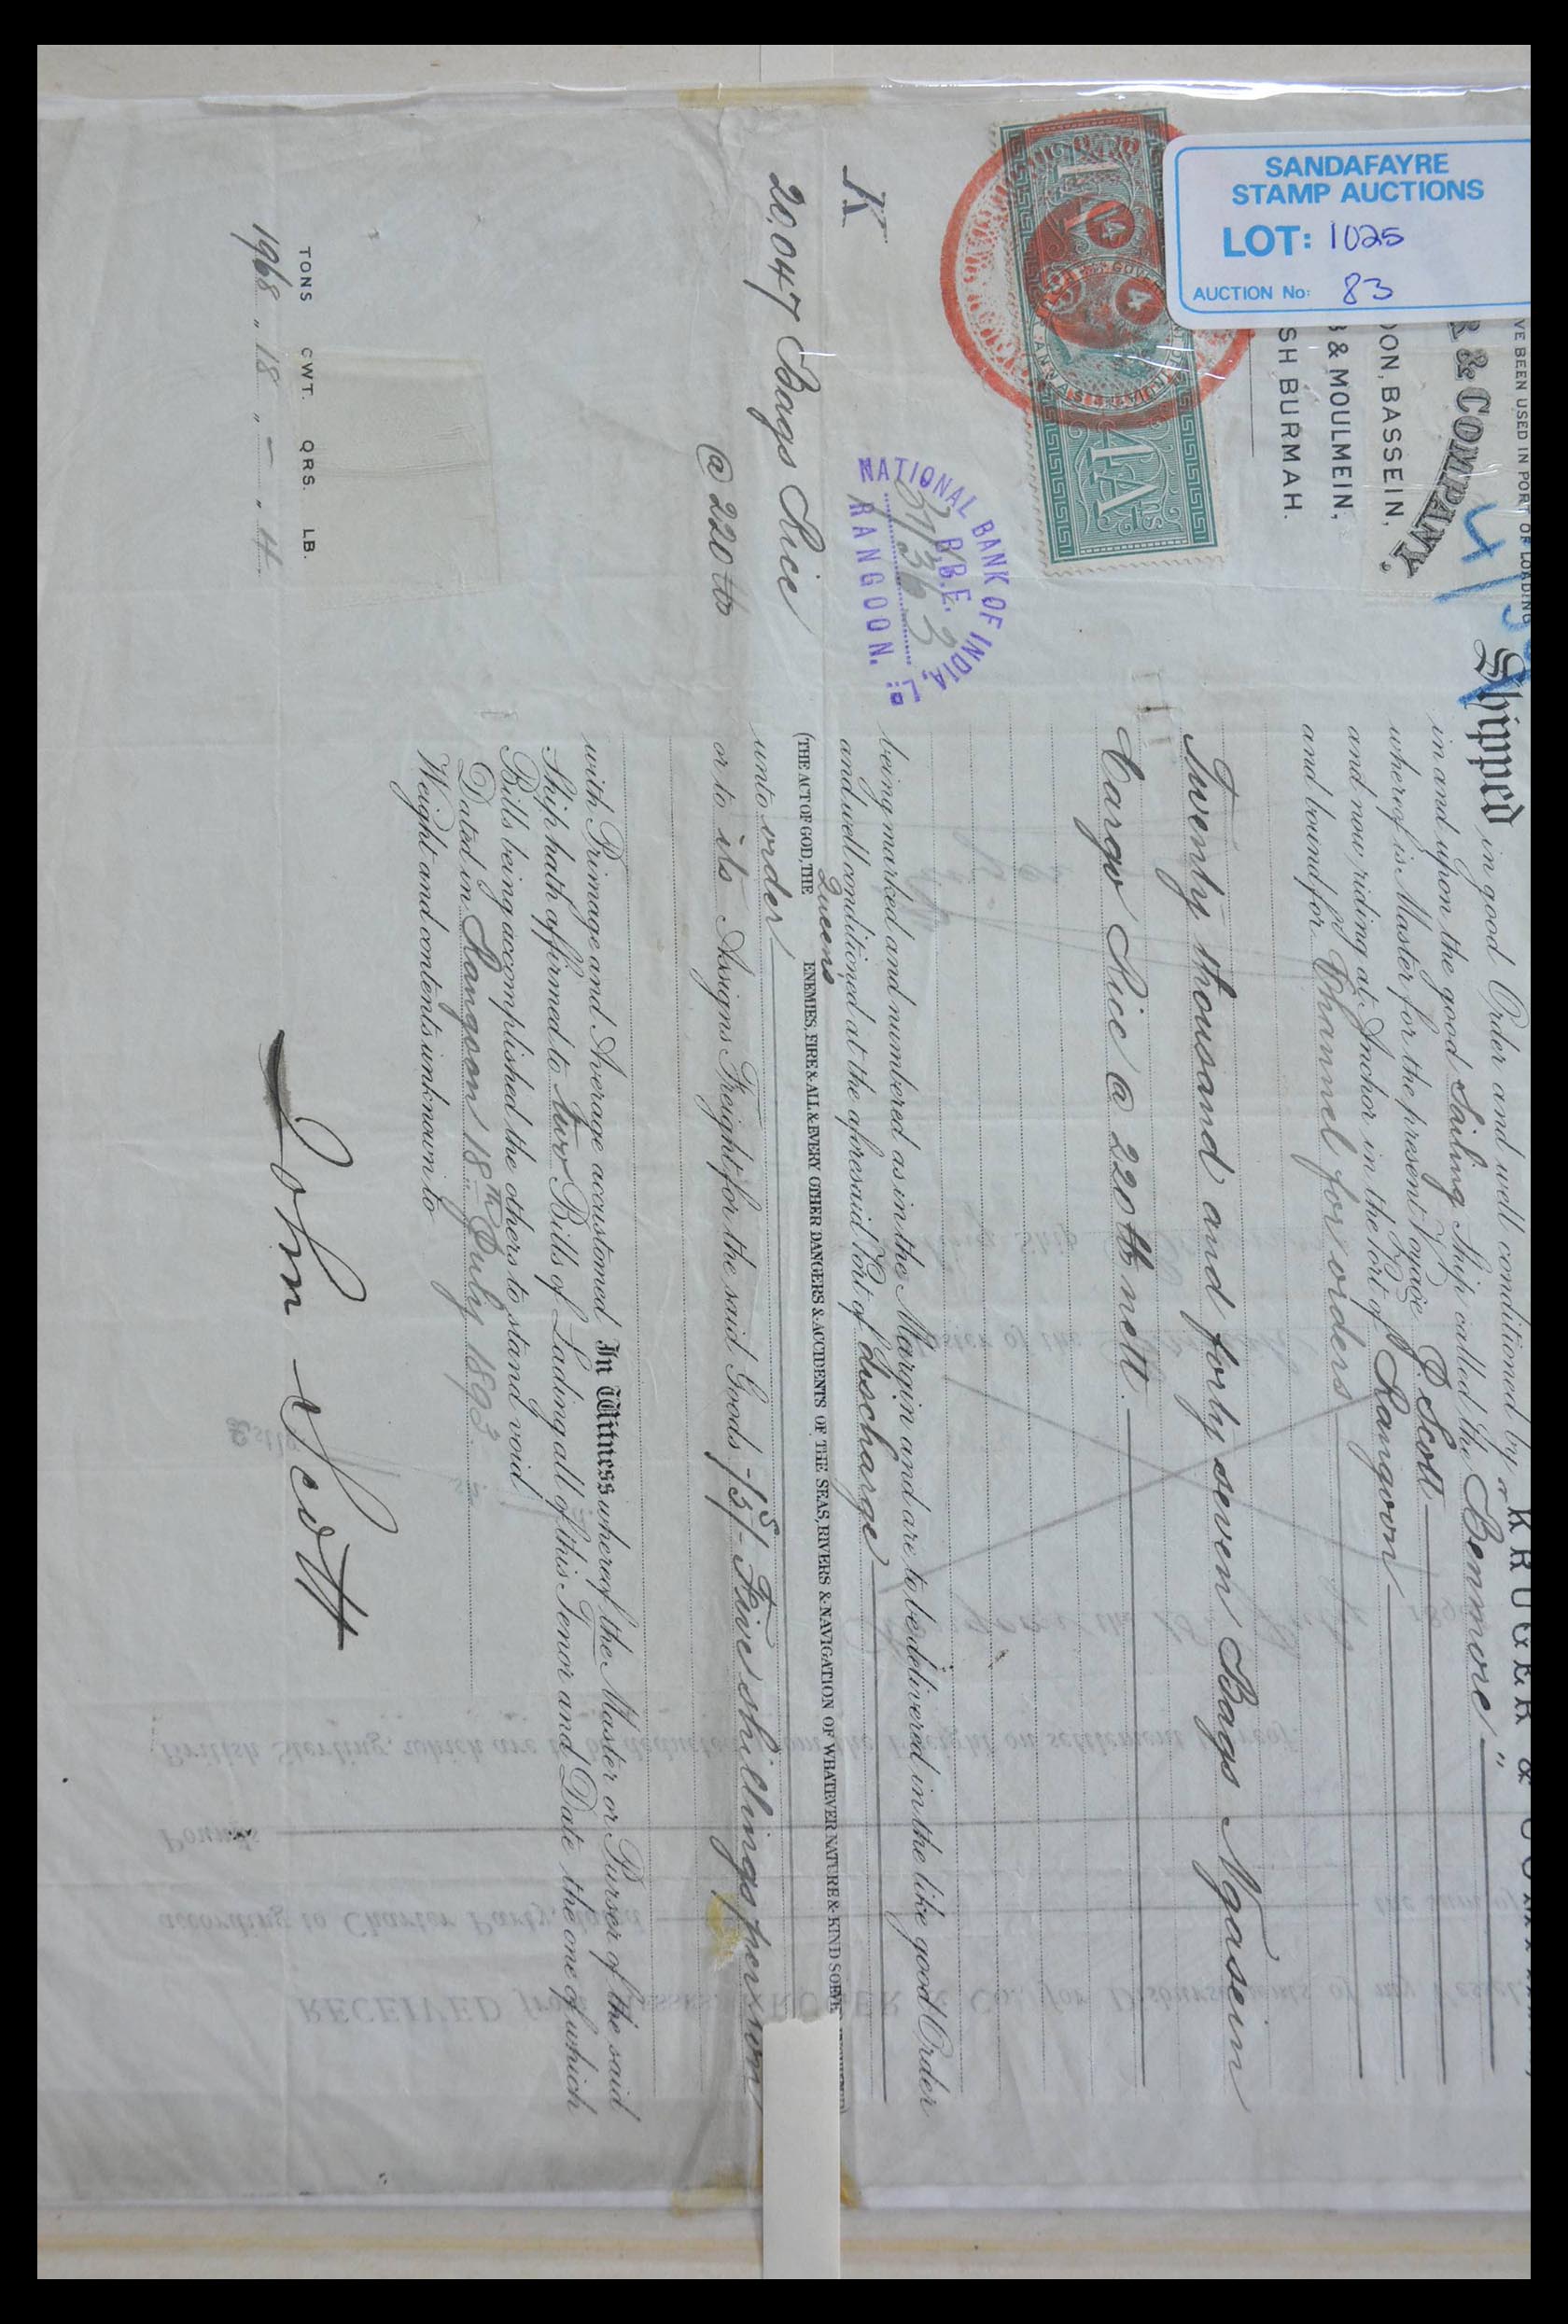 SANDAFAYRE
STAMP AUCTIONS
LOT: 1025
AUCTION No: 83
VE BEEN USED IN PORT OF LOADING
R & COMPANY.
OON, BASSEIN,
B & MOULMEIN,
SH BURMAH.
4 AS
K
NATIONAL BANK OF INDIA, Ld
B.B.E.
37/363
RANGOON.
20,047 Bags Rice
@ 220 lb
TONS CWT. QRS. LB.
1968 " 18 " - " 4
KRUGER & COM
Shipped in good Order and well conditioned by
in and upon the good Sailing Ship called the "Benmore"
whereof is Master for the present Voyage J. Scott
and now riding at Anchor in the Port of Rangoon
and bound for Channel for orders
Twenty thousand and forty seven Bags Ngasein
Cargo Rice @ 220 lb nett.
being marked and numbered as in the Margin and are to be delivered in the like good Order
and well conditioned at the aforesaid Port of discharge
(THE ACT OF GOD, THE Queens ENEMIES, FIRE & ALL & EVERY OTHER DANGERS & ACCIDENTS OF THE SEAS, RIVERS & NAVIGATION OF WHATEVER NATURE & KIND SOEVE
unto order
or to its Assigns Freight for the said Goods -/5/- Five shillings per ton
with Primage and Average accustomed In Witness whereof the Master or Purser of the said
Ship hath affirmed to two Bills of Lading all of this Tenor and Date the one of which
Bills being accomplished the others to stand void
Dated in Rangoon 18th July 1893
Weight and contents unknown to
John Scott
RECEIVED from Messrs. KRUGER & Co., for Disbursements of my Vessel,
according to Charter Party, dated the sum of
Pounds
British Sterling, which are to be deducted from the Freight on settlement thereof.